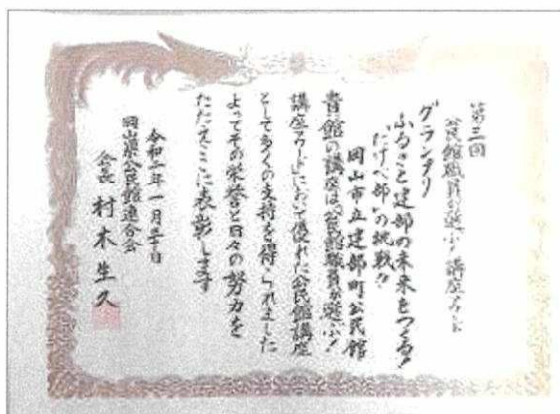 第三回
公民館職員が選ぶ！講座アワード
グランプリ
ふるさと建部の未来をつくる！
“たけべ部”の挑戦!!
岡山市立建部町公民館
貴館の講座は「公民館職員が選ぶ！
講座アワード」において優れた公民館講座
として多くの支持を得られました
よってその栄誉と日々の努力を
たたえここに表彰します
令和二年一月三十日
岡山県公民館連合会
会長 村木生久